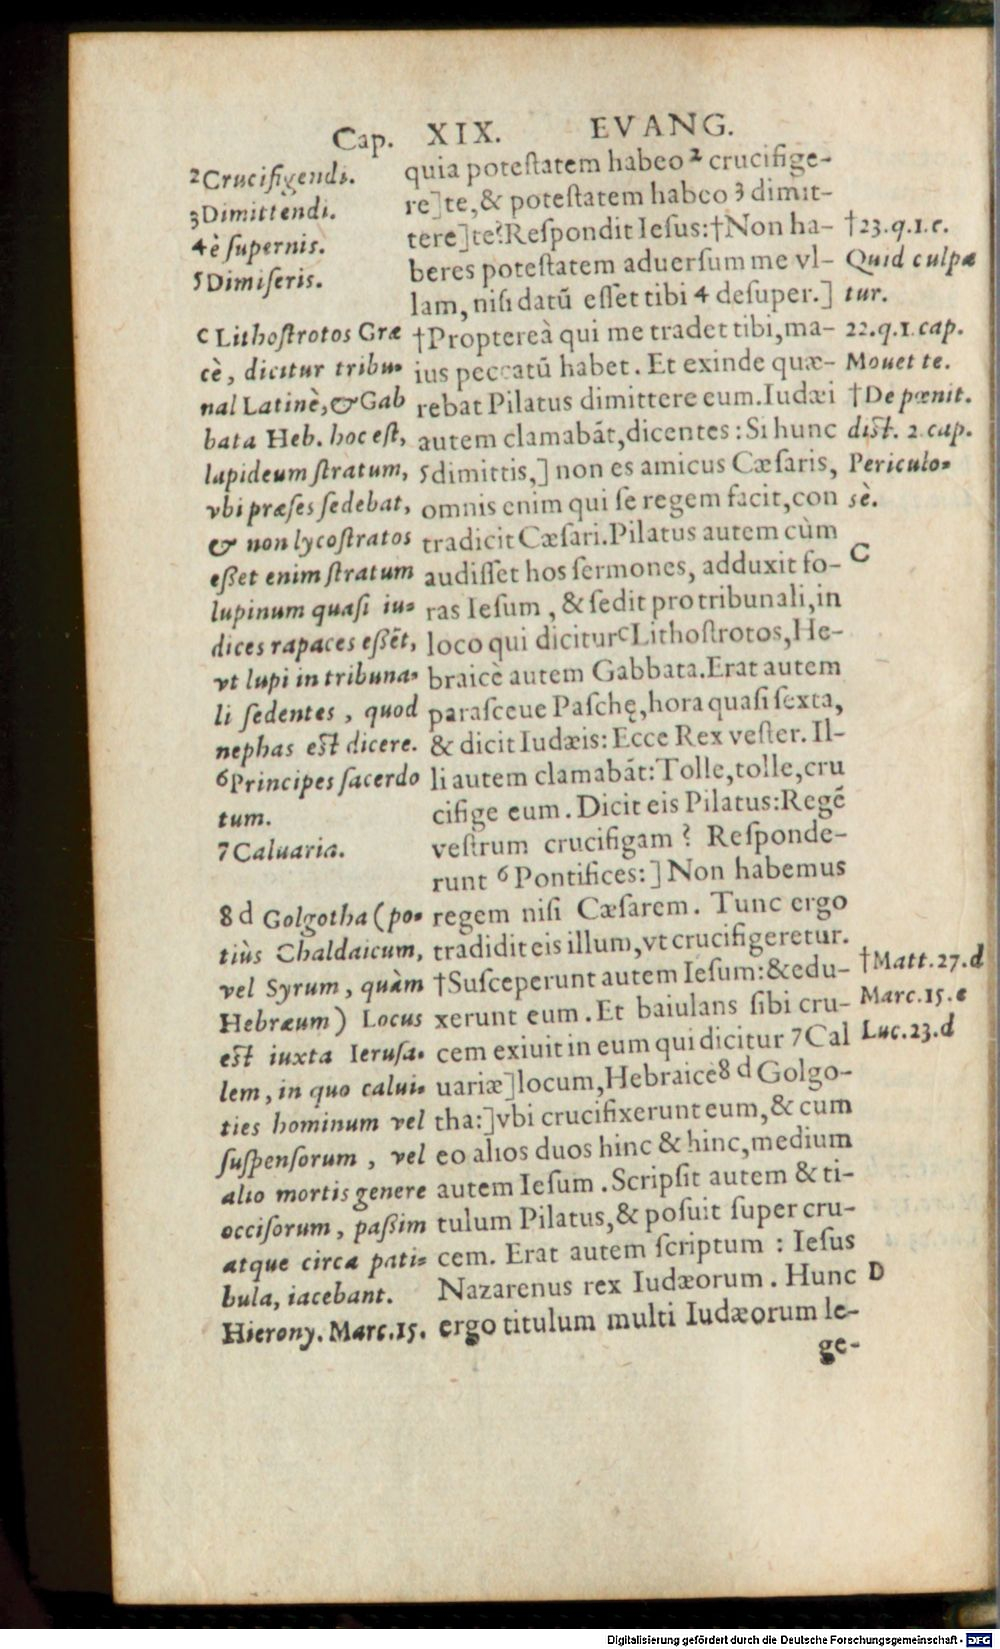 Cap. XIX. EVANG.
²Crucifigendi.
3Dimittendi.
4è ſupernis.
5Dimiſeris.
c Lithoſtrotos Græ
cè, dicitur tribu-
nal Latinè, & Gab
bata Heb. hoc eſt,
lapideum ſtratum,
vbi præſes ſedebat,
& non lycoſtratos
eſſet enim ſtratum
lupinum quaſi iu-
dices rapaces eſſẽt,
vt lupi in tribuna-
li ſedentes, quod
nephas eſt dicere.
⁶Principes ſacerdo
tum.
7Caluaria.
8 d Golgotha (po-
tiùs Chaldaicum,
vel Syrum, quàm
Hebræum) Locus
eſt iuxta Ieruſa-
lem, in quo calui-
ties hominum vel
ſuſpenſorum, vel
alio mortis genere
occiſorum, paſſim
atque circa pati-
bula, iacebant.
Hierony. Marc.15.
quia poteſtatem habeo ² crucifige-
re]te, & poteſtatem habeo 3 dimit-
tere]te? Reſpondit Ieſus: †Non ha-
beres poteſtatem aduerſum me vl-
lam, niſi datũ eſſet tibi 4 deſuper.]
†Propterea̍ qui me tradet tibi, ma-
ius peccatũ habet. Et exinde quæ-
rebat Pilatus dimittere eum. Iudæi
autem clamabãt, dicentes: Si hunc
5dimittis,] non es amicus Cæſaris,
omnis enim qui ſe regem facit, con
tradicit Cæſari. Pilatus autem cùm
audiſſet hos ſermones, adduxit fo-
ras Ieſum, & ſedit pro tribunali, in
loco qui dicitur ᶜLithoſtrotos, He-
braicè autem Gabbata. Erat autem
paraſceue Paſchę, hora quaſi ſexta,
& dicit Iudæis: Ecce Rex veſter. Il-
li autem clamabãt: Tolle, tolle, cru
cifige eum. Dicit eis Pilatus: Regẽ
veſtrum crucifigam? Reſponde-
runt ⁶ Pontifices:] Non habemus
regem niſi Cæſarem. Tunc ergo
tradidit eis illum, vt crucifigeretur.
†Suſceperunt autem Ieſum: & edu-
xerunt eum. Et baiulans ſibi cru-
cem exiuit in eum qui dicitur 7 Cal
uariæ]locum, Hebraice 8 d Golgo-
tha:] vbi crucifixerunt eum, & cum
eo alios duos hinc & hinc, medium
autem Ieſum. Scripſit autem & ti-
tulum Pilatus, & poſuit ſuper cru-
cem. Erat autem ſcriptum: Ieſus
Nazarenus rex Iudæorum. Hunc
ergo titulum multi Iudæorum le-
ge-
†23.q.1.c.
Quid culpa
tur.
22.q.1.cap.
Mouet te.
†De pœnit.
diſt. 2.cap.
Periculo-
sè.
C
†Matt.27.d
Marc.15.c
Luc.23.d
D
Digitalisierung gefördert durch die Deutsche Forschungsgemeinschaft - DFG